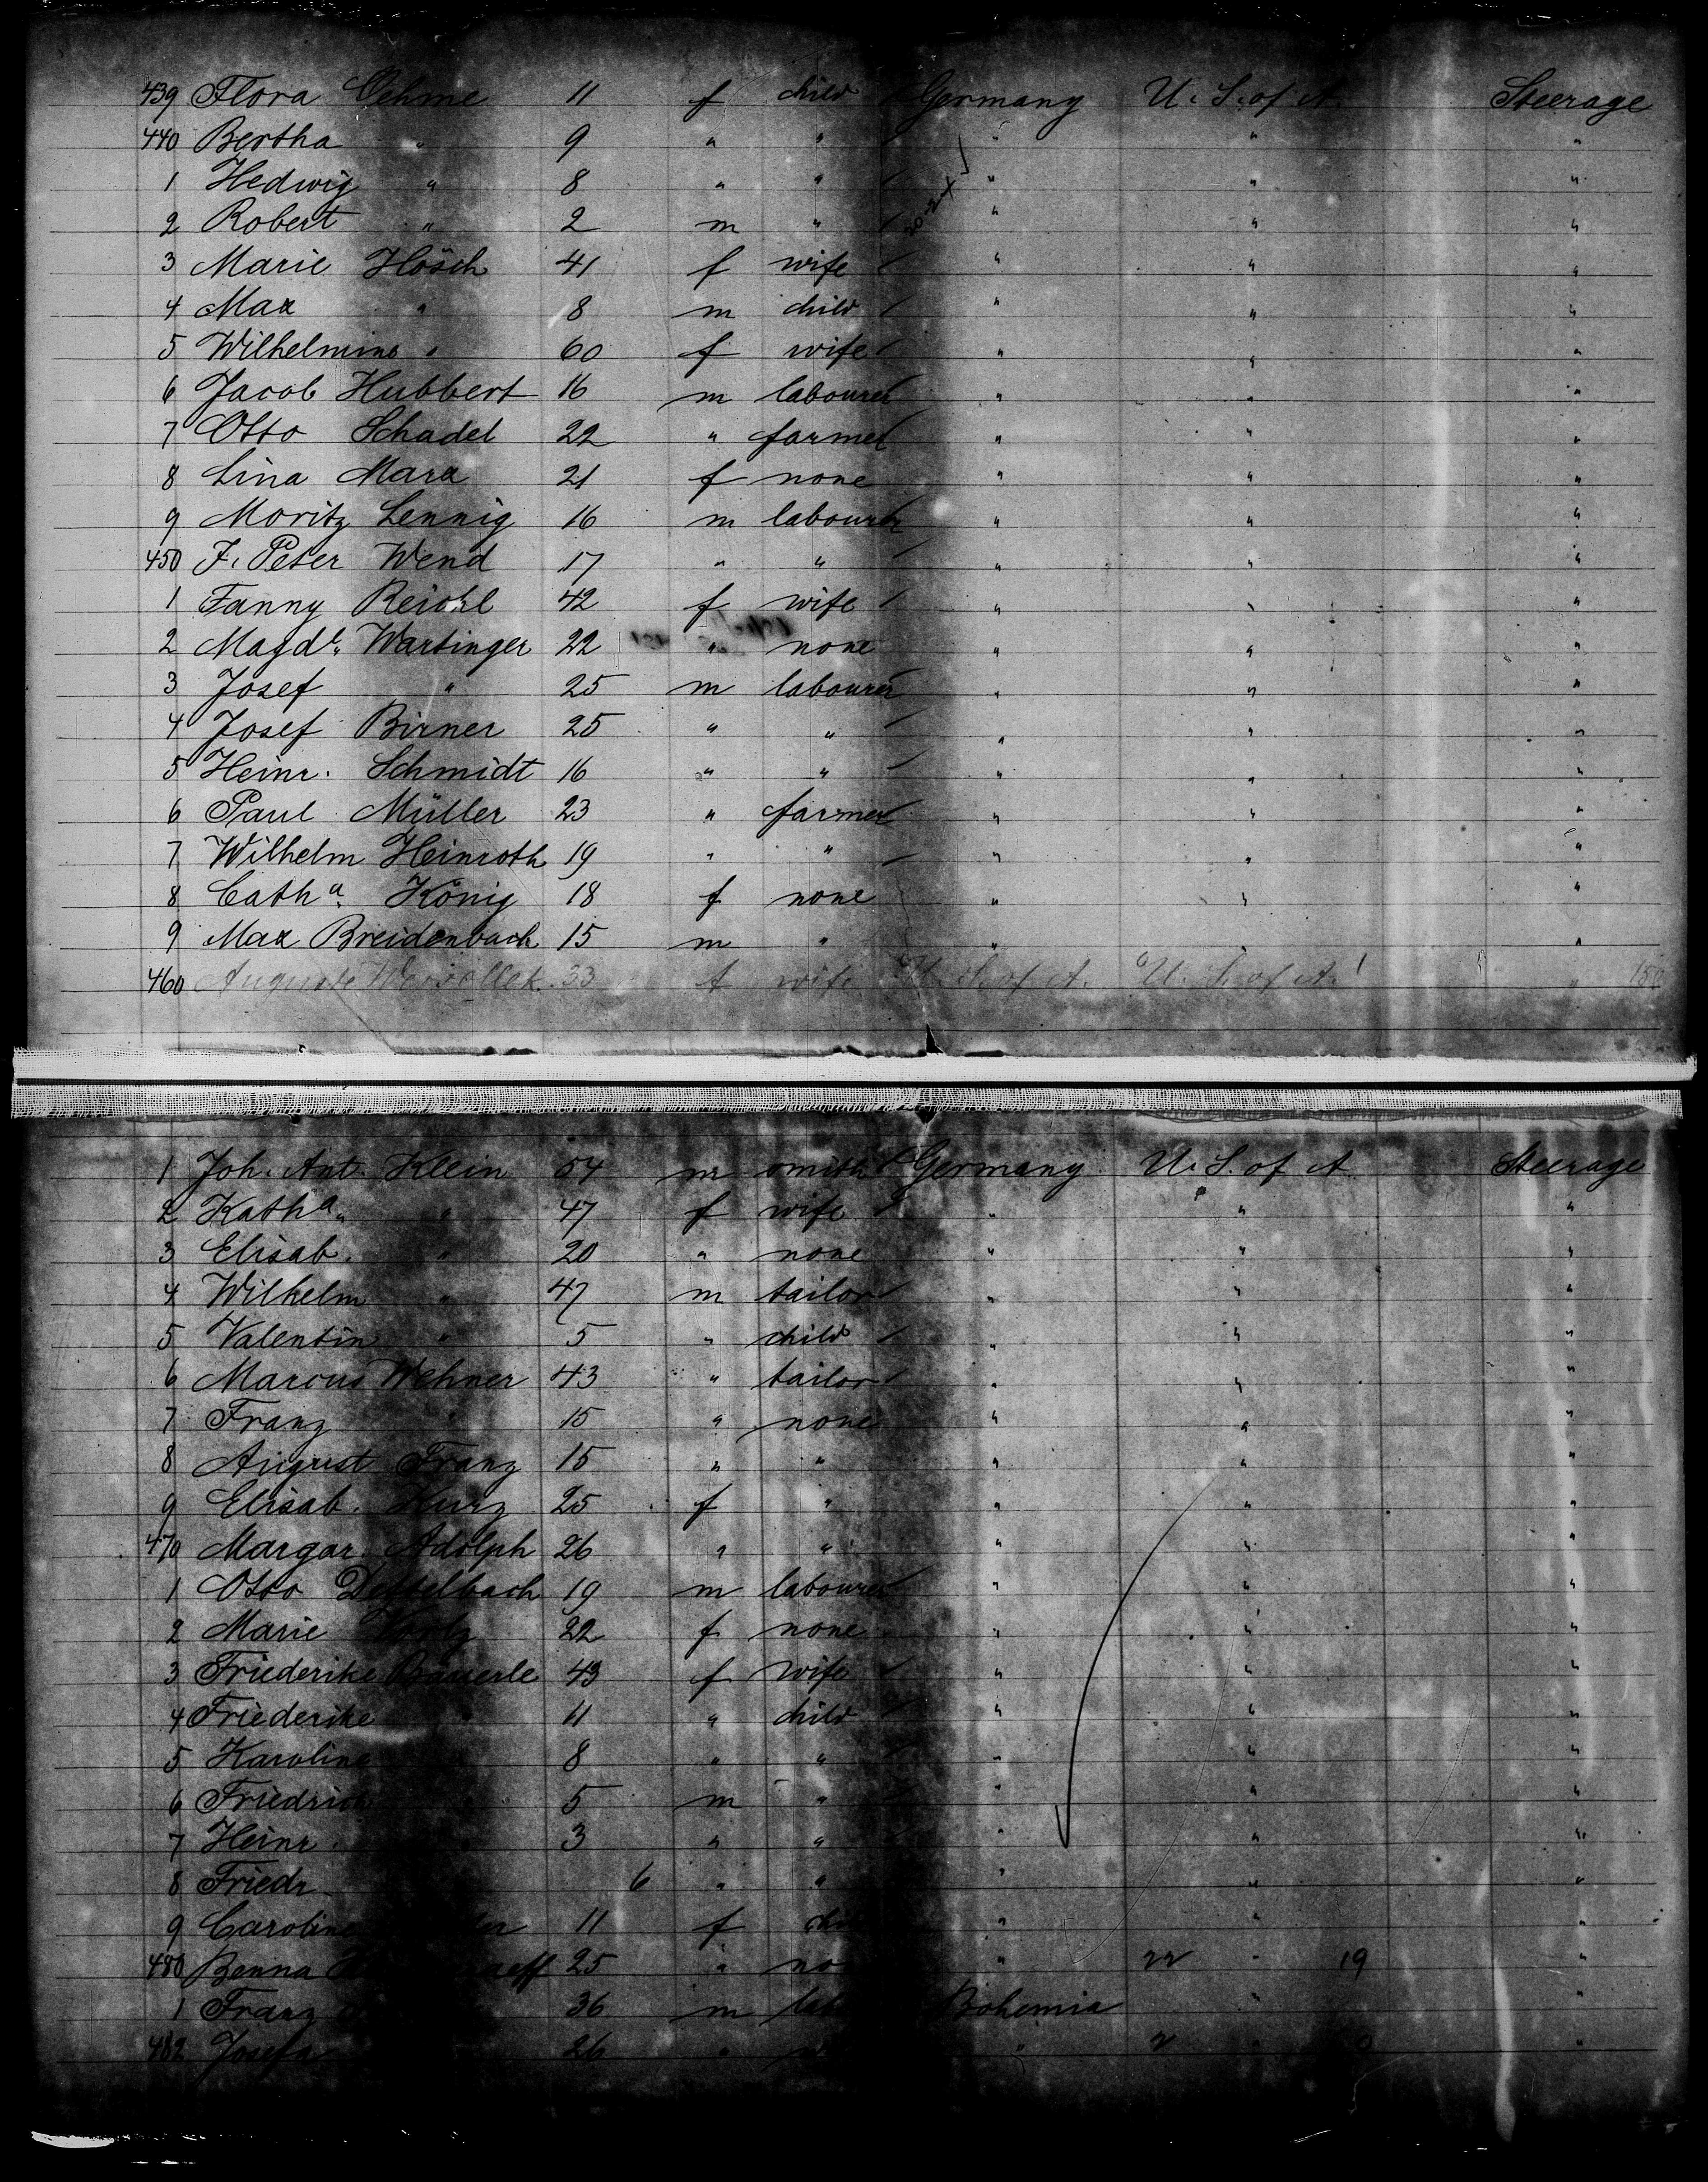 439 Flora Oehme 11 f child Germany U. S. of A. Steerage
440 Bertha " 9 " " " " "
1 Hedwig " 8 " " " " "
2 Robert " 2 m " " " "
3 Marie Hösch 41 f wife " " "
4 Max " 8 m child " " "
5 Wilhelmine " 60 f wife " " "
6 Jacob Hubbert 16 m labourer " " "
7 Otto Schadel 22 " farmer " " "
8 Lina Marx 21 f none " " "
9 Moritz Lennig 16 m labourer " " "
450 F. Peter Wend 17 " " " " "
1 Fanny Reichl 42 f wife " " "
2 Magd. Wartinger 22 " none " " "
3 Josef " 25 m labourer " " "
4 Josef Birner 25 " " " " "
5 Heinr. Schmidt 16 " " " " "
6 Paul Müller 23 " farmer " " "
7 Wilhelm Heinroth 19 " " " " "
8 Catha. König 18 f none " " "
9 Max Breidenbach 15 m " " " "
460 Auguste 33 f wife U. S. of A. U. S. of A. " 150
1 Joh. Ant. Klein 54 m smith Germany U. S. of A Steerage
2 Katha. " 47 f wife " " "
3 Elisab. " 20 " none " " "
4 Wilhelm " 47 m tailor " " "
5 Valentin " 5 " child " " "
6 Marcus Wehner 43 " tailor " " "
7 Franz " 15 " none " " "
8 August Franz 15 " " " " "
9 Elisab. Kurz 25 f " " " "
470 Margar. Adolph 26 " " " " "
1 Otto 19 m labourer " " "
2 Marie 22 f none " " "
3 Friederike Bäuerle 43 f wife " " "
4 Friederike " 11 " child " " "
5 Karoline 8 " " " " "
6 Friedrich 5 m " " " "
7 Heinr. 3 " " " " "
8 Friedr. 6 " " " " "
9 Caroline 11 f " " "
480 Benna 25 " " " 19 "
1 Franz 36 m Bohemia " "
482 Josefa 26 " " " "